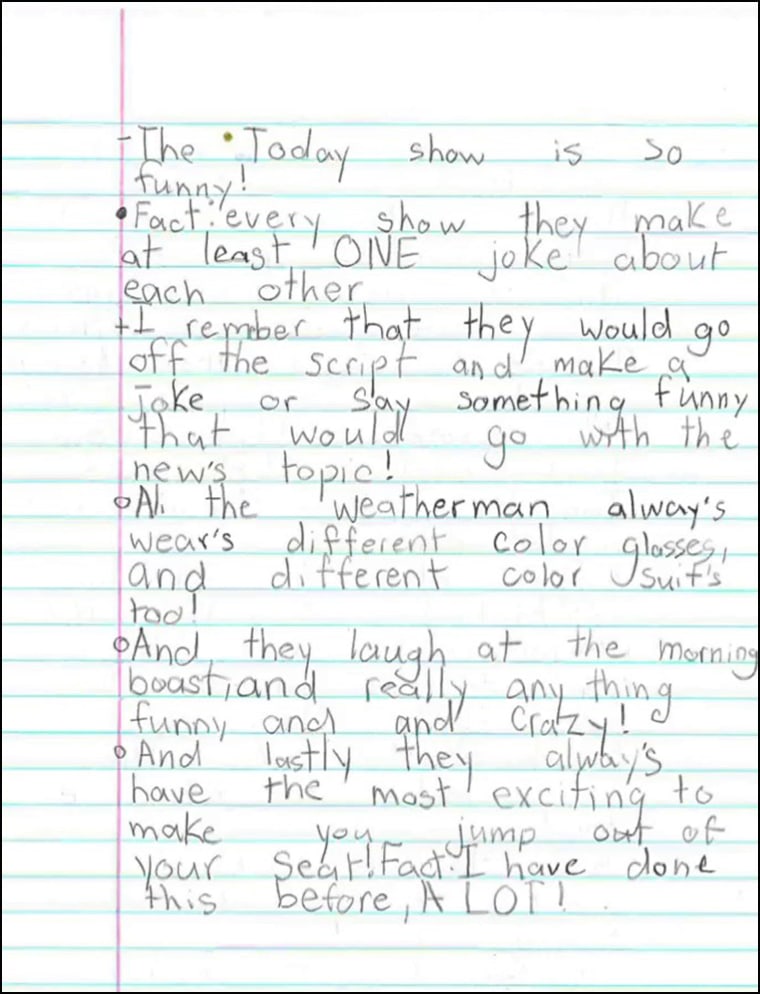 - The Today show is so
funny!
• Fact: every show they make
at least ONE joke about
each other
+ I rember that they would go
off the script and make a
joke or say something funny
that would go with the
new's topic!
o Al the weatherman alway's
wear's different color glasses,
and different color suit's
too!
o And they laugh at the morning
boast, and really any thing
funny and and crazy!
o And lastly they alway's
have the most exciting to
make you jump out of
your seat! Fact: I have done
this before, A LOT!